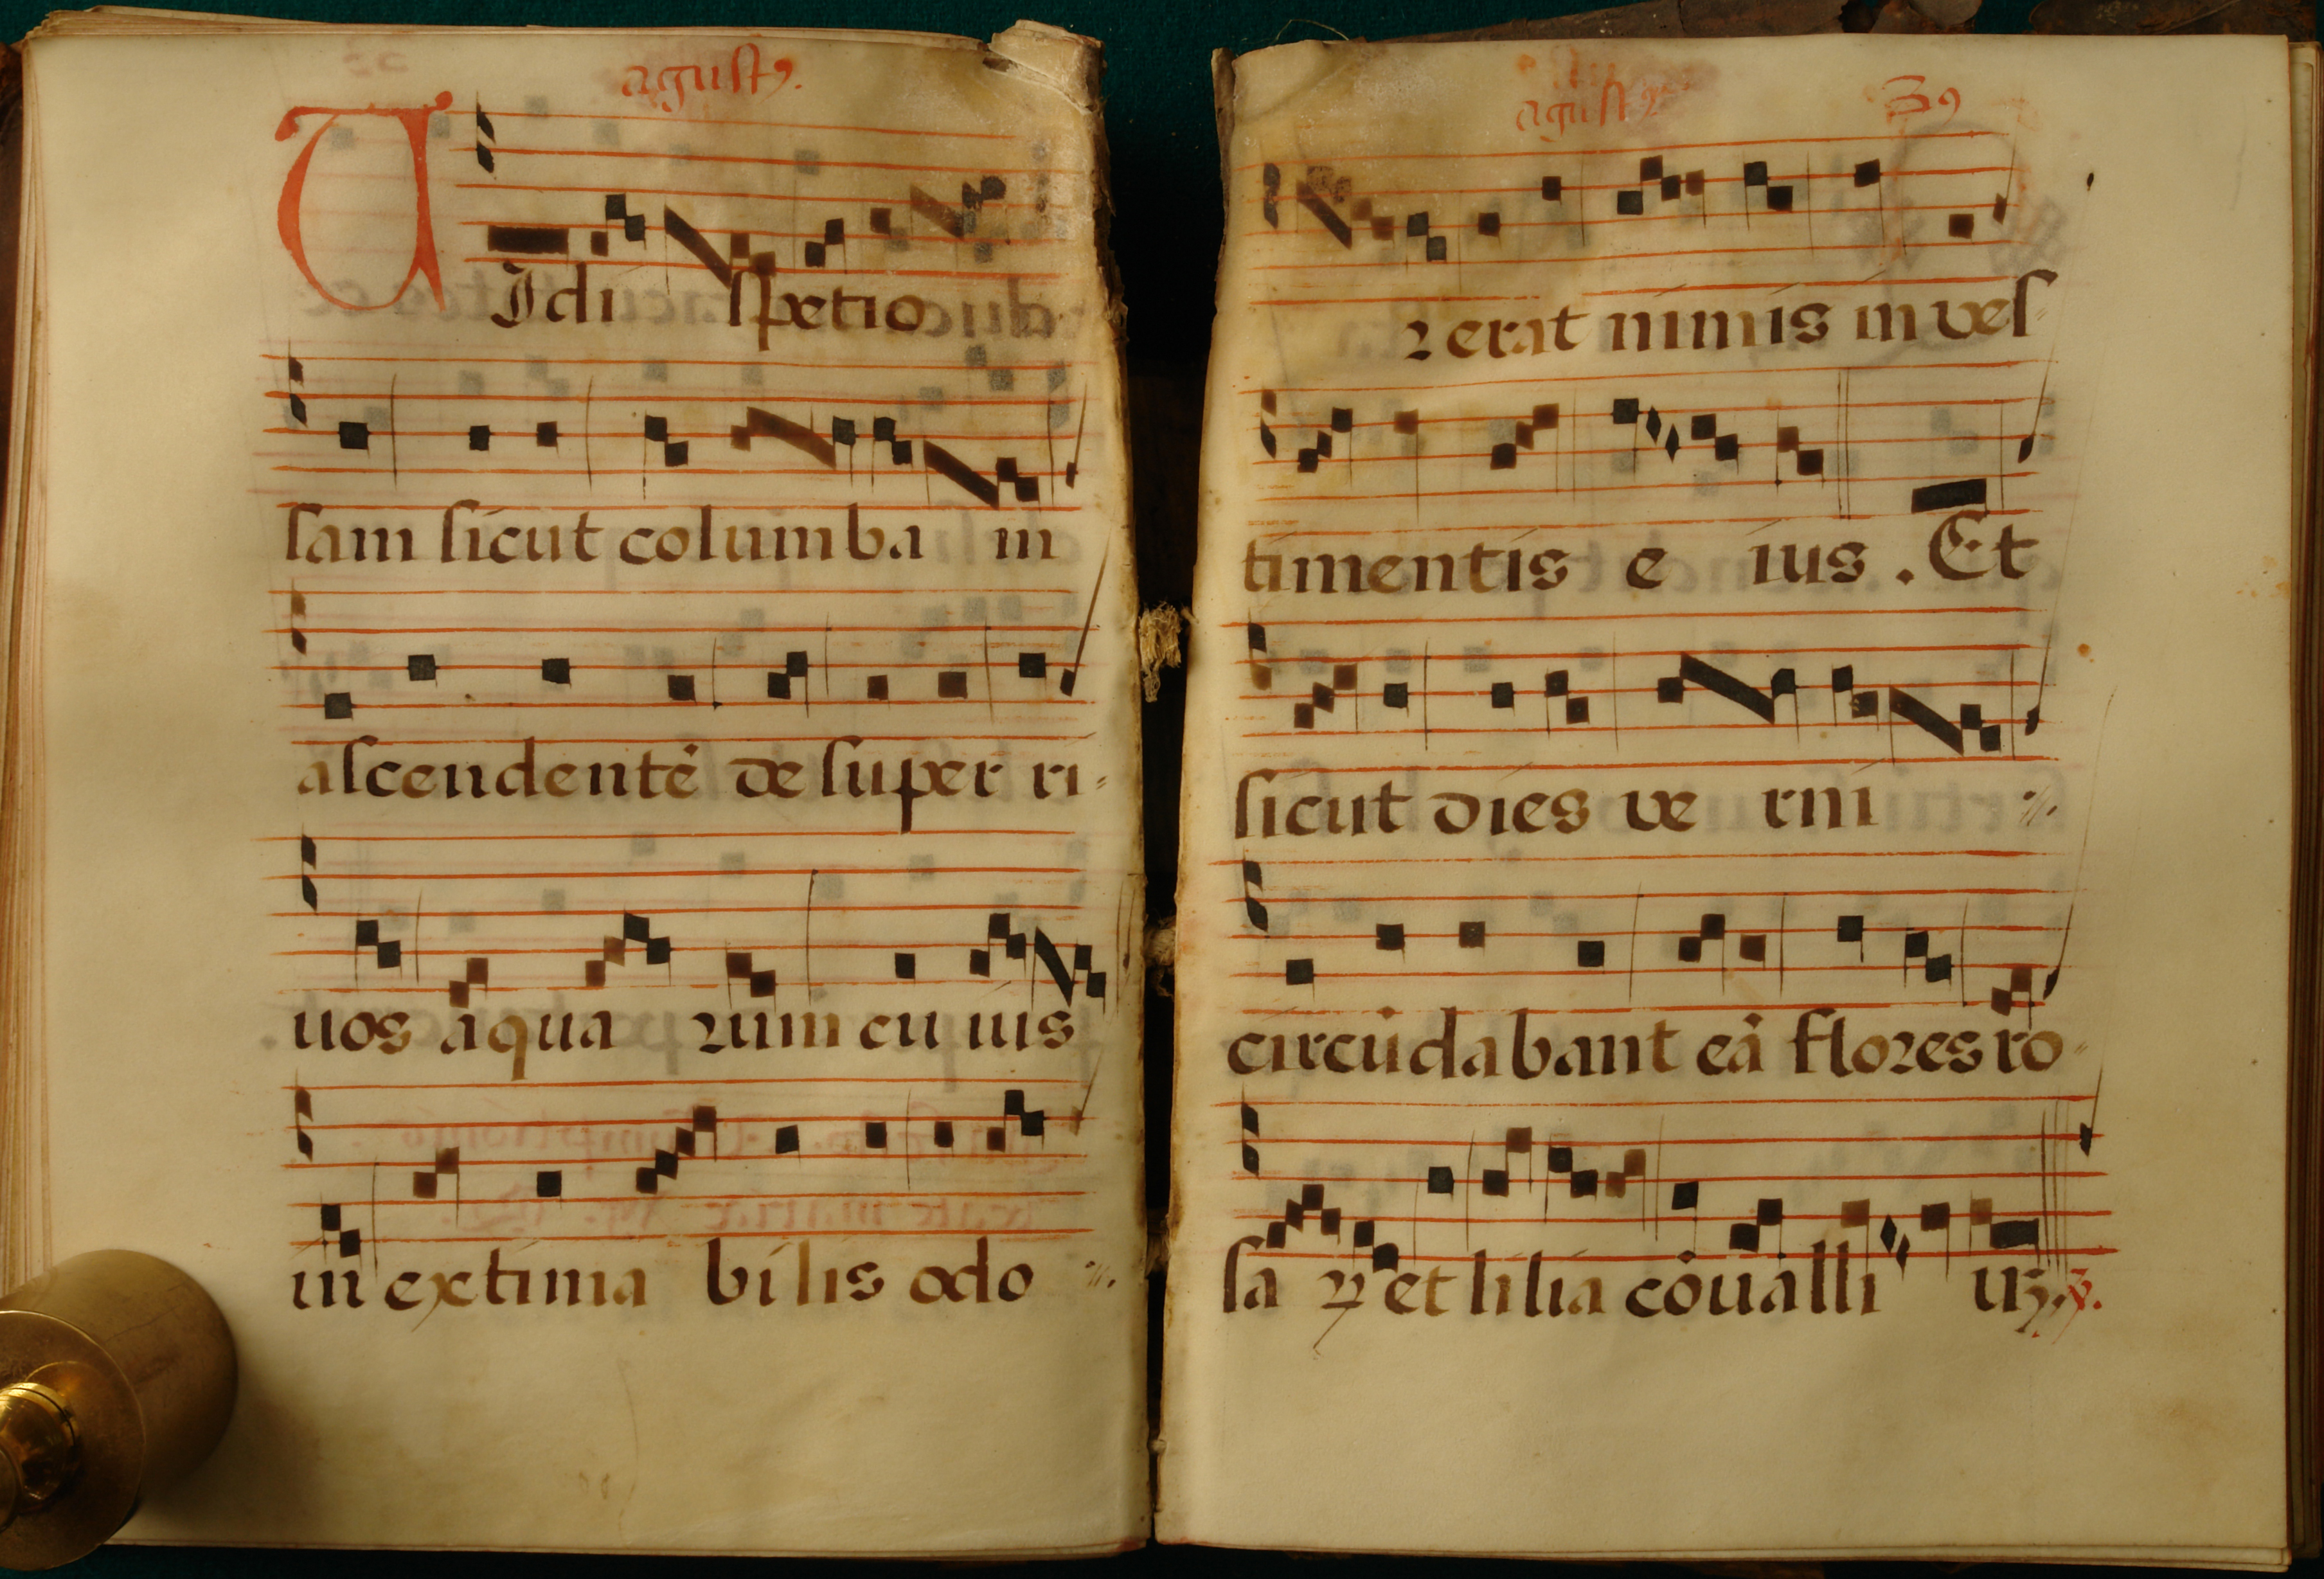 agustꝰ.
VIdi spetio
sam sicut columba in
ascendentē de super ri-
uos aqua ꝛum cu ius
in extima bilis odo
agustꝰ 39
ꝛ erat nimis in ves-
timentis e ius . Et
sicut dies ve rni
circūdabant eā floꝛes ro-
sa ꝝ et lilia cōualli uꝫ. ℣.